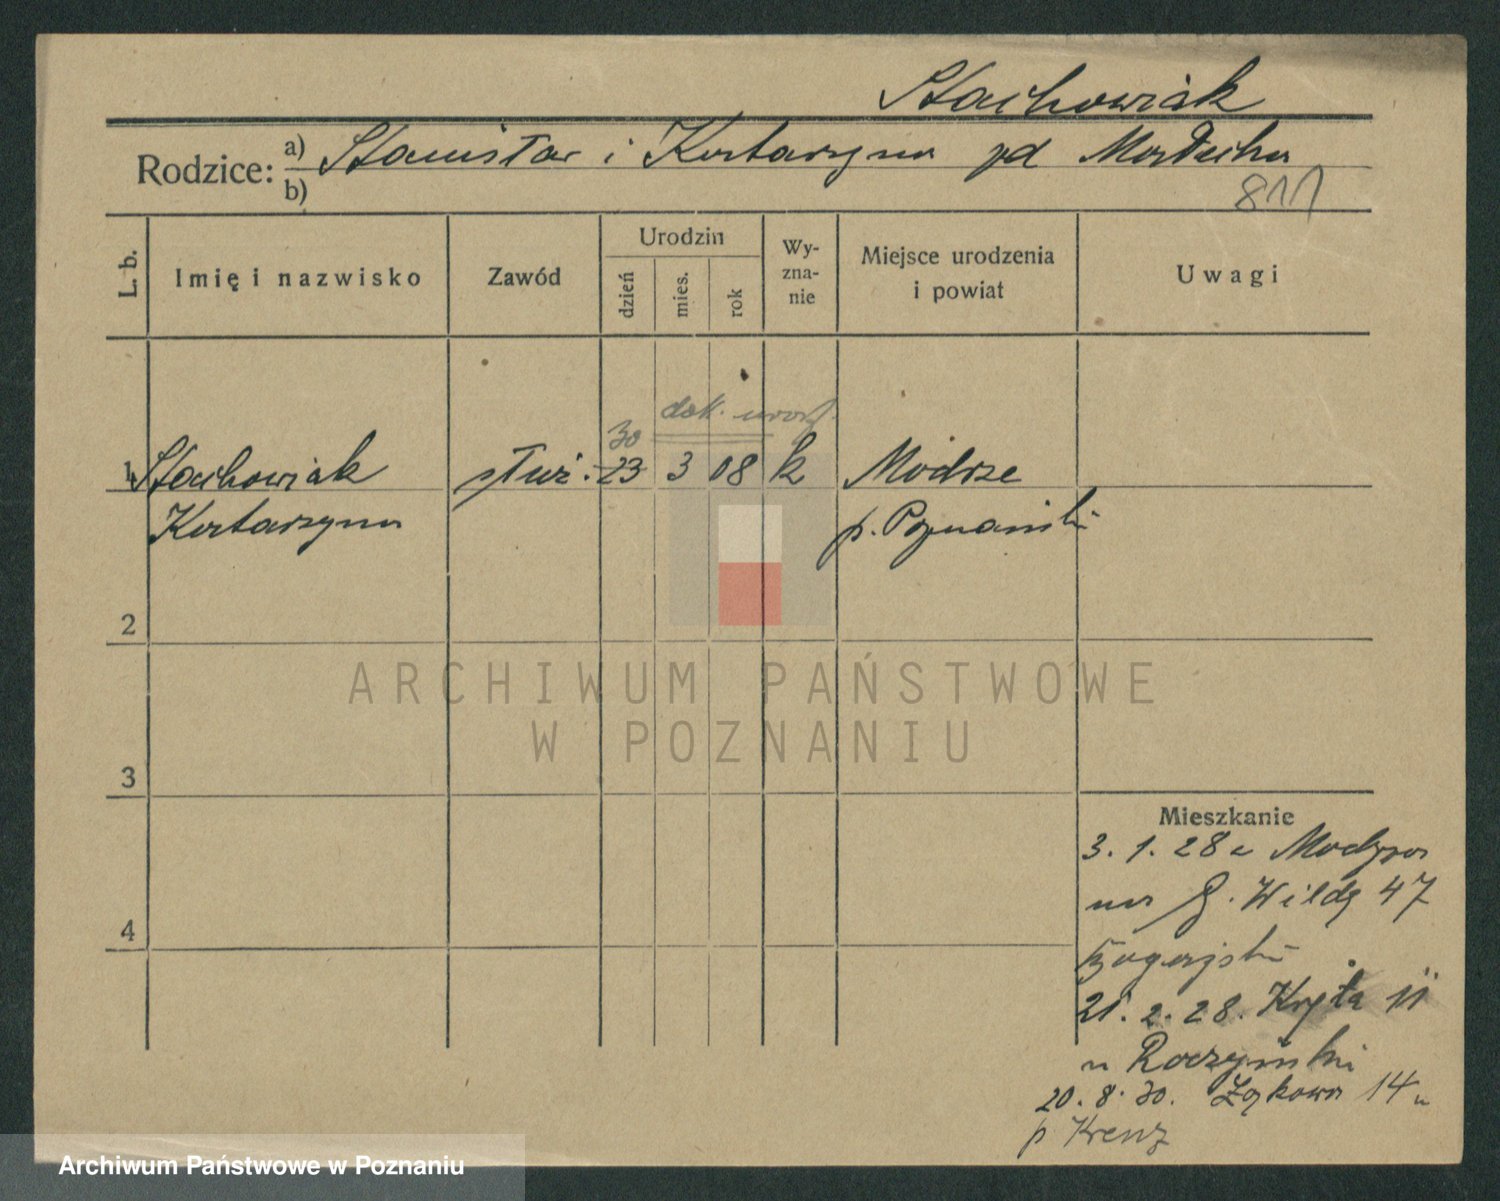 Stachowiak
Rodzice: a) Stanisław i Katarzyna zd
b)
811
L. b. Imię i nazwisko Zawód Urodzin dzień mies. rok Wyznanie Miejsce urodzenia i powiat Uwagi
dok. urodz.
30
1 Stachowiak służ. 23 3 08 k Modrze
Katarzyna p. Poznański
2
ARCHIWUM PAŃSTWOWE
W POZNANIU
3
Mieszkanie
3. 1. 28 z Modrza
na G. Wildę 47
4
21. 2. 28. Kręta 11
u
20. 8. 30. Łąkowa 14 u
p Krenz
Archiwum Państwowe w Poznaniu